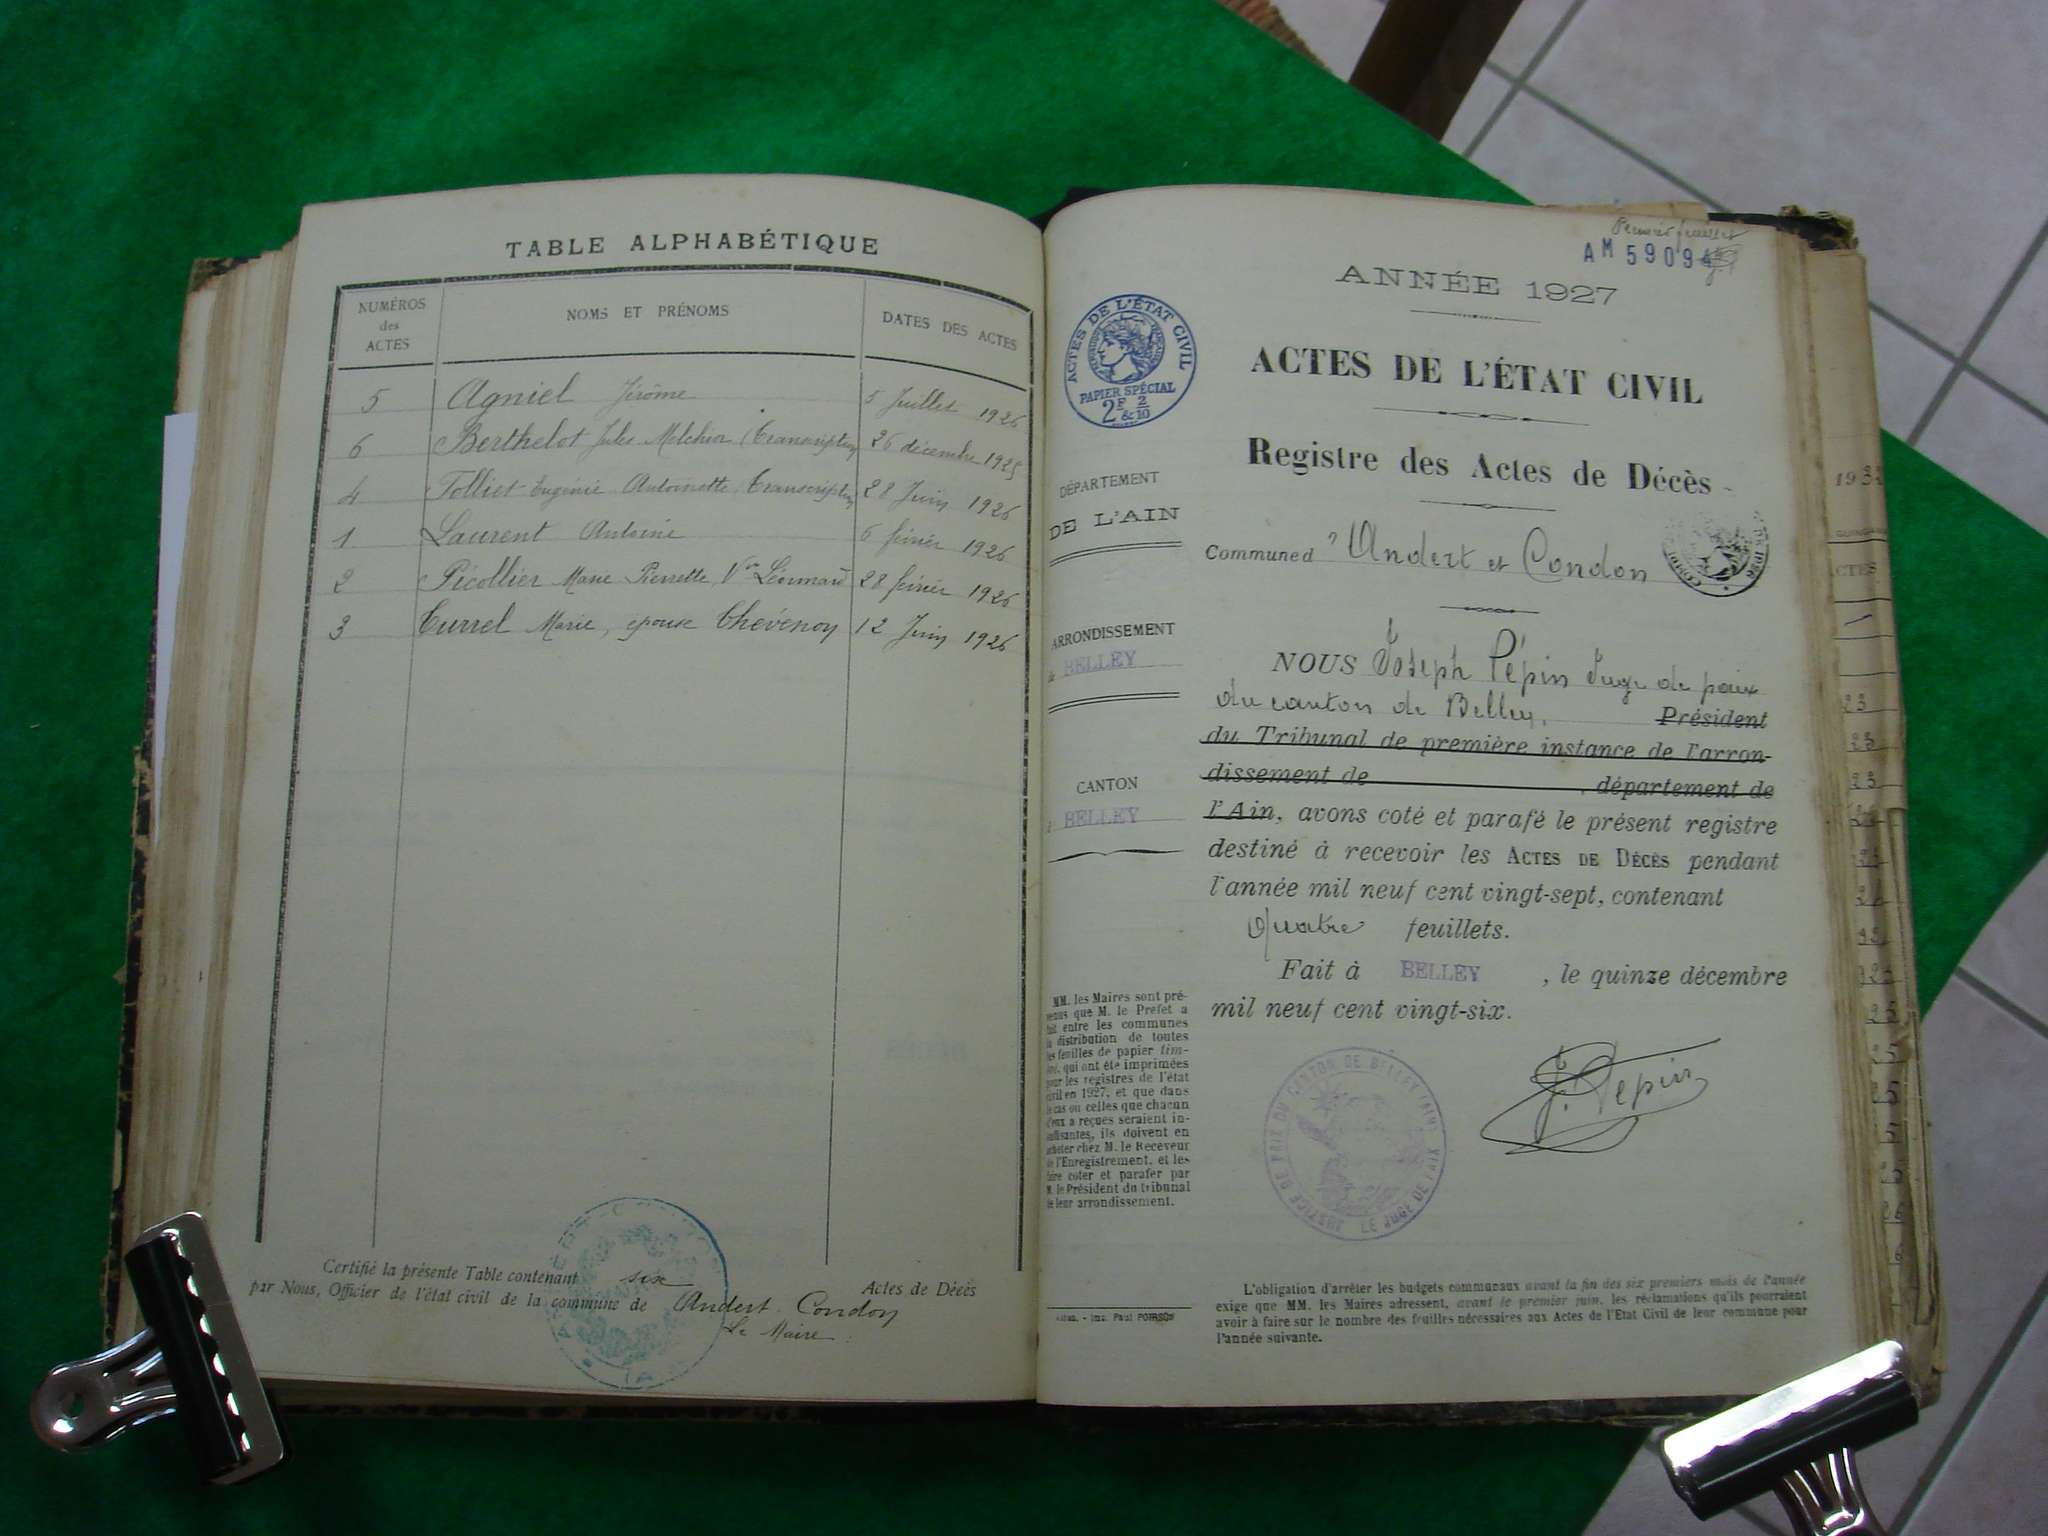 TABLE ALPHABÉTIQUE
NUMÉROS
des
ACTES
NOMS ET PRÉNOMS
DATES DES ACTES
5 Agniel Jérôme 5 Juillet 1926
6 Berthelot Jules Melchior (Transcription 26 décembre 1925
4 Tolliet Eugénie Antoinette Transcription 28 Juin 1926
1 Laurent Antoine 6 février 1926
2 Picollier Marie Pierrette, Vve Léonnard 28 février 1926
3 Turrel Marie, épouse Thévenon 12 Juin 1926
Certifié la présente Table contenant six Actes de Décès
par Nous, Officier de l'état civil de la commune de Andert-Condon
Le Maire :
Premier feuillet
AM 59094
ANNÉE 1927
ACTES DE L'ÉTAT CIVIL
RÉPUBLIQUE FRANÇAISE
PAPIER SPÉCIAL
2F & 2/10
ACTES DE L'ÉTAT CIVIL
Registre des Actes de Décès
DÉPARTEMENT
DE L'AIN
Commune d'Andert et Condon
ARRONDISSEMENT
de BELLEY
CANTON
BELLEY
NOUS Joseph Pépin Juge de paix
du canton de Belley, Président
du Tribunal de première instance de l'arron-
dissement de , département de
l'Ain, avons coté et parafé le présent registre
destiné à recevoir les ACTES DE DÉCÈS pendant
l'année mil neuf cent vingt-sept, contenant
quatre feuillets.
Fait à BELLEY, le quinze décembre
mil neuf cent vingt-six.
J. Pepin
JUSTICE DE PAIX DU CANTON DE BELLEY (AIN)
LE JUGE DE PAIX
MM. les Maires sont pré-
venus que M. le Préfet a
fait entre les communes
la distribution de toutes
les feuilles de papier tim-
bré, qui ont été imprimées
pour les registres de l'état
civil en 1927, et que dans
le cas où celles que chacun
d'eux a reçues seraient in-
suffisantes, ils doivent en
acheter chez M. le Receveur
de l'Enregistrement, et les
faire coter et parafer par
M. le Président du tribunal
de leur arrondissement.
Imp. Paul POIRSON
L'obligation d'arrêter les budgets communaux avant la fin des six premiers mois de l'année
exige que MM. les Maires adressent, avant le premier juin, les réclamations qu'ils pourraient
avoir à faire sur le nombre des feuilles nécessaires aux Actes de l'Etat Civil de leur commune pour
l'année suivante.